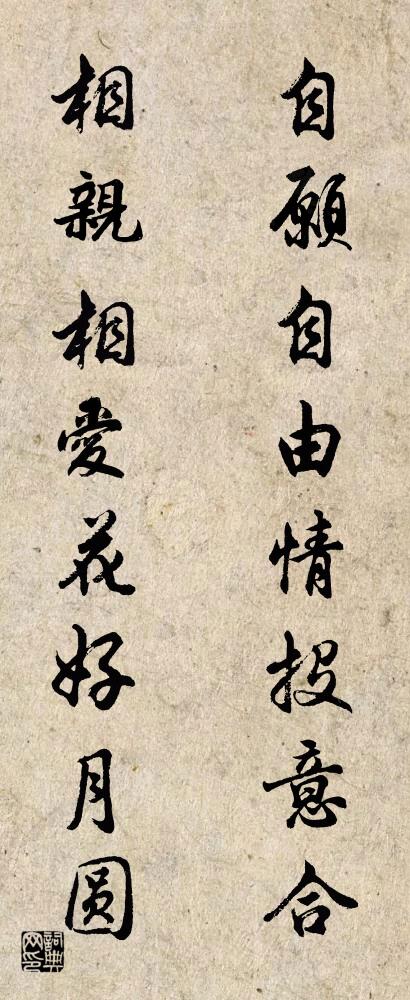 自願自由情投意合
相親相愛花好月圆
詞典网印